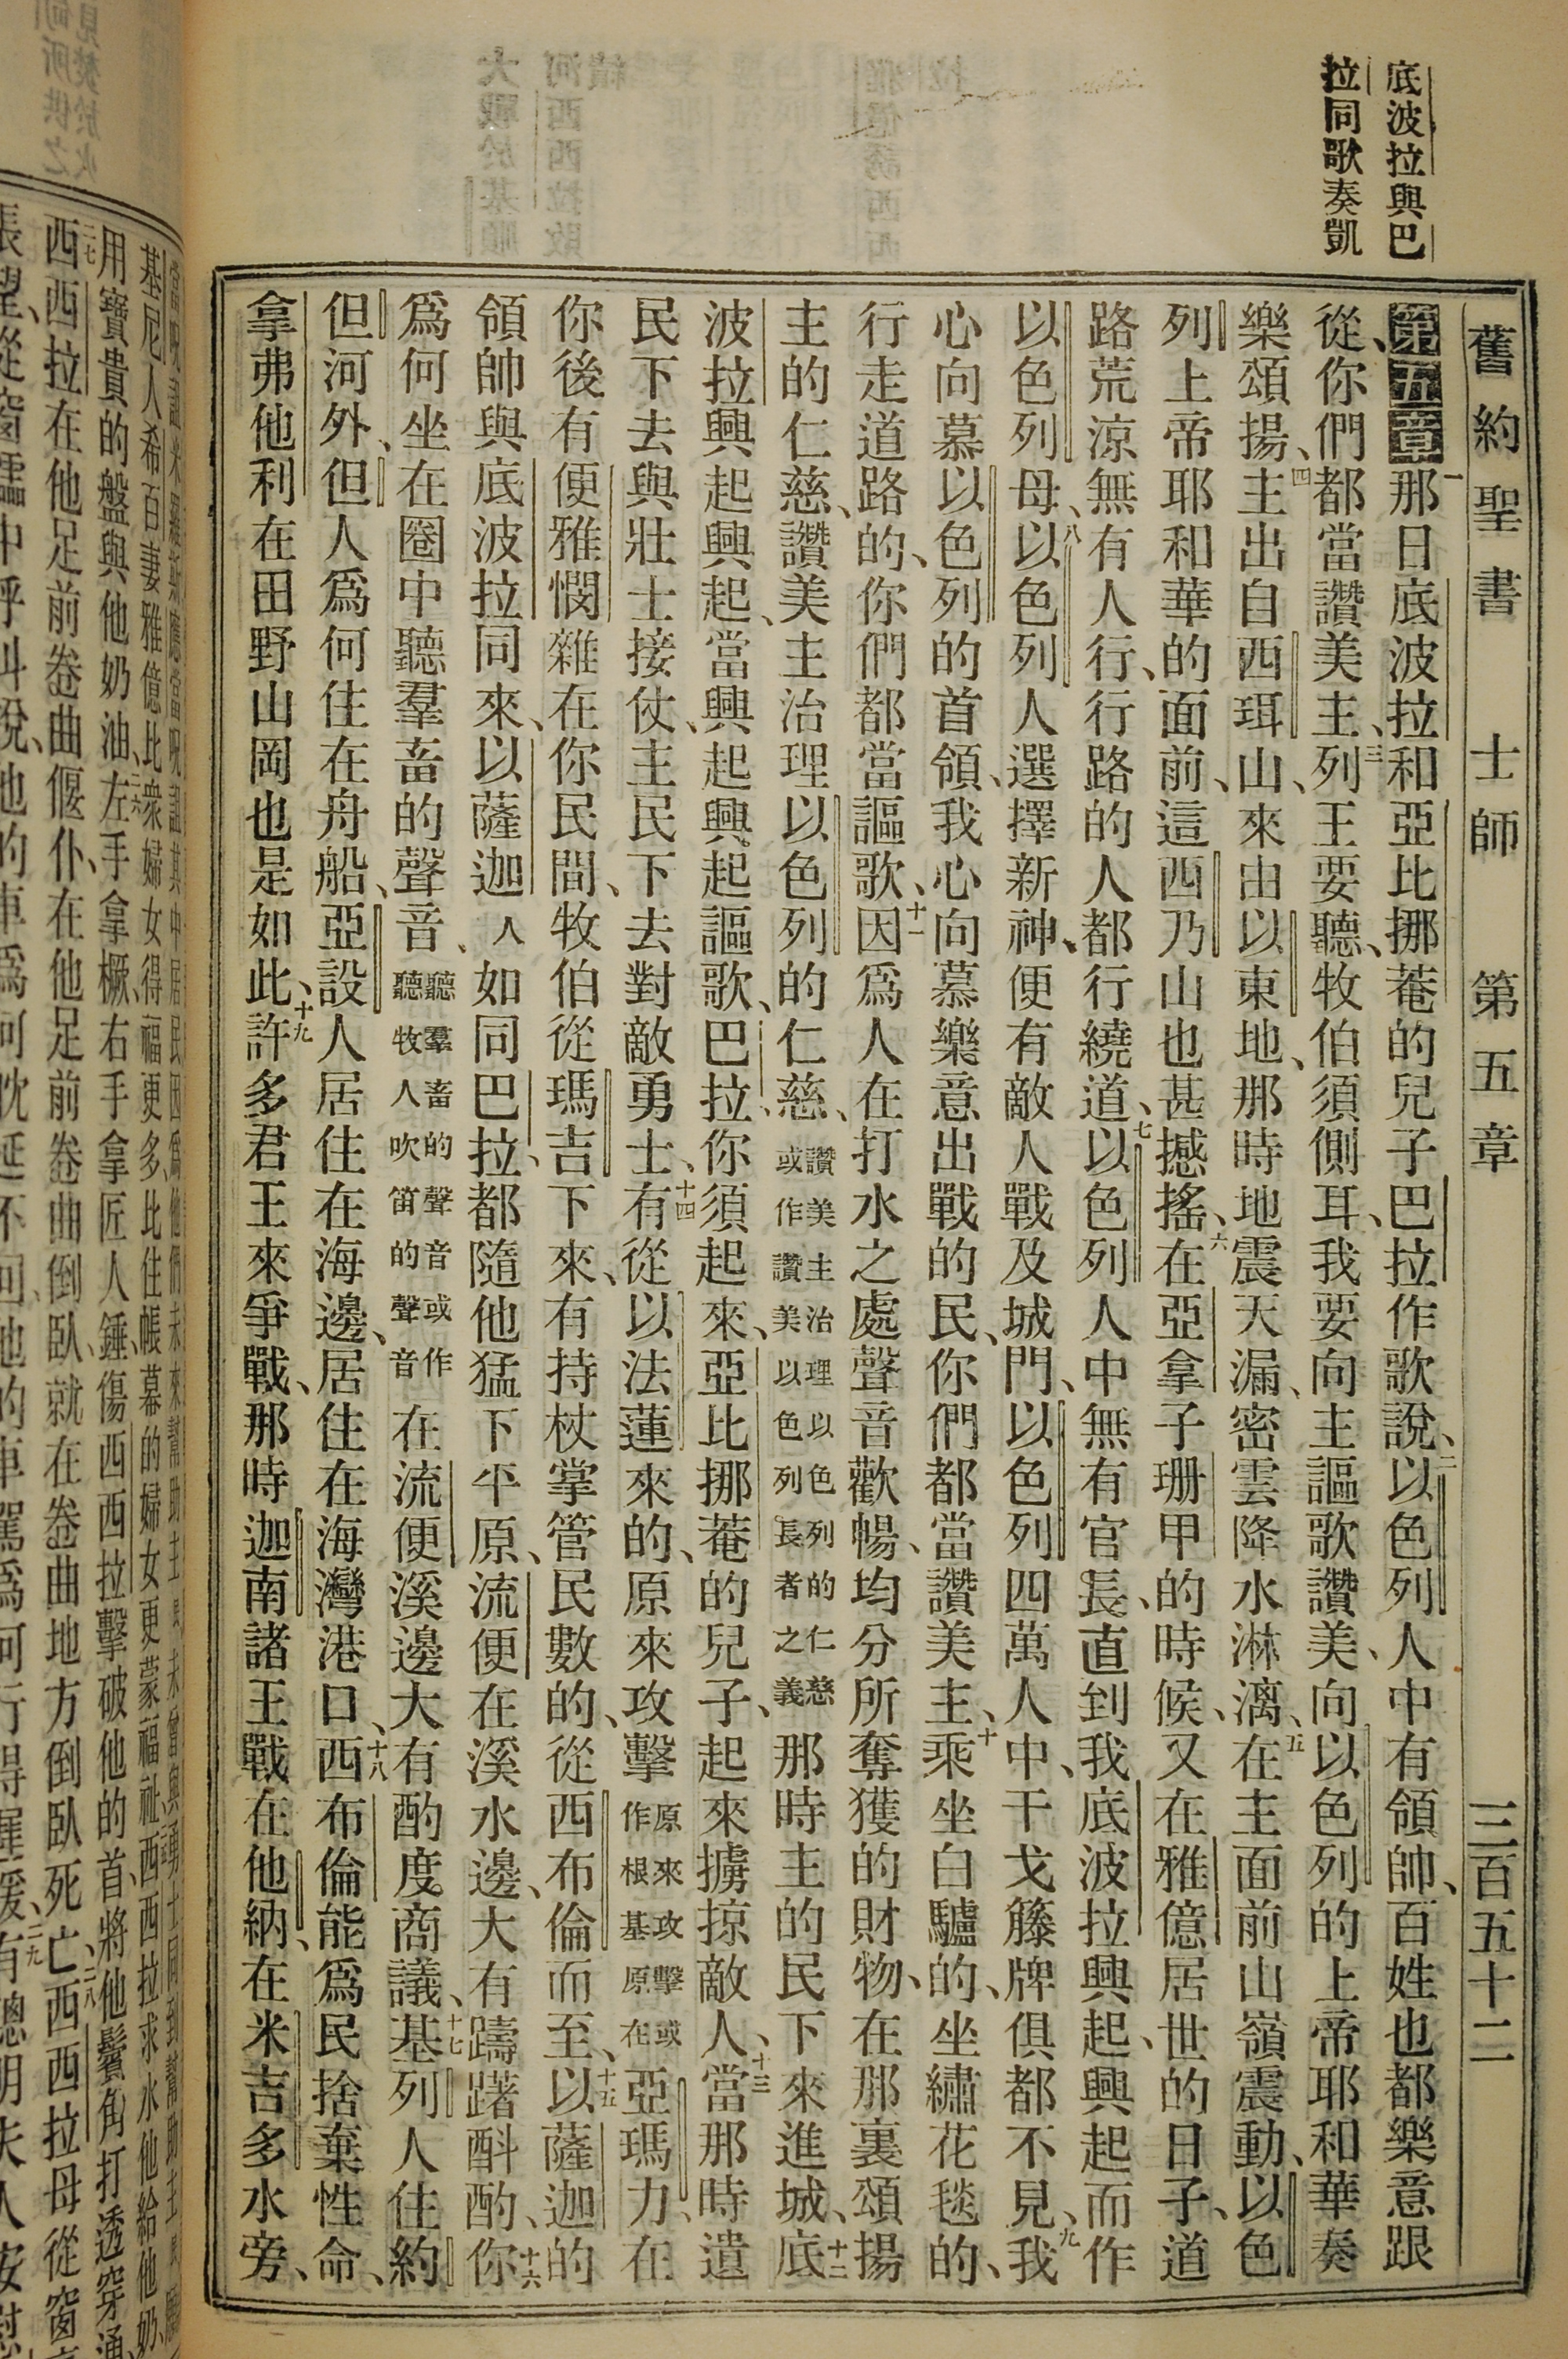 底波拉與巴
拉同歌奏凱
舊約聖書 士師 第五章 三百五十二
第五章一那日底波拉和亞比挪菴的兒子巴拉作歌說、二以色列人中有領帥、百姓也都樂意跟
從、你們都當讚美主、三列王要聽、牧伯須側耳、我要向主謳歌讚美、向以色列的上帝耶和華奏
樂頌揚、四主出自西珥山、來由以東地、那時地震天漏、密雲降水淋漓、五在主面前山嶺震動、以色
列上帝耶和華的面前、這西乃山也甚撼搖、六在亞拿子珊甲的時候、又在雅億居世的日子、道
路荒涼無有人行、行路的人都行繞道、七以色列人中無有官長、直到我底波拉興起、興起而作
以色列母、八以色列人選擇新神、便有敵人戰及城門、以色列四萬人中、干戈籐牌俱都不見、九我
心向慕以色列的首領、我心向慕樂意出戰的民、你們都當讚美主、十乘坐白驢的、坐繡花毯的、
行走道路的、你們都當謳歌、十一因爲人在打水之處聲音歡暢、均分所奪獲的財物、在那裏頌揚
主的仁慈、讚美主治理以色列的仁慈、讚美主治理以色列的仁慈或作讚美以色列長者之義那時主的民下來進城、十二底
波拉興起興起、當興起興起謳歌、巴拉、你須起來、亞比挪菴的兒子、起來擄掠敵人、十三當那時遺
民下去與壯士接仗、主民下去對敵勇士、十四有從以法蓮來的、原來攻擊原來攻擊或作根基原在亞瑪力、在
你後有便雅憫雜在你民間、牧伯從瑪吉下來、有持杖掌管民數的、從西布倫而至、十五以薩迦的
領帥與底波拉同來、以薩迦人如同巴拉、都隨他猛下平原、流便在溪水邊、大有躊躇斟酌、十六你
爲何坐在圈中聽羣畜的聲音、聽羣畜的聲音或作聽牧人吹笛的聲音在流便溪邊大有酌度商議、十七基列人住約
但河外、但人爲何住在舟船、亞設人居住在海邊、居住在海灣港口、十八西布倫能爲民捨棄性命、
拿弗他利在田野山岡也是如此、十九許多君王來爭戰、那時迦南諸王戰在他納、在米吉多水旁、
基尼人希百妻雅億比衆婦女得福更多、比住帳幕的婦女更蒙福祉西西拉求水他給他奶、
用寶貴的盤與他奶油、二六左手拿橛、右手拿匠人錘、傷西西拉擊破他的首、將他鬢角打透穿通、
二七西西拉在他足前卷曲偃仆、在他足前卷曲倒臥、就在卷曲地方倒臥死亡、二八西西拉母從窗